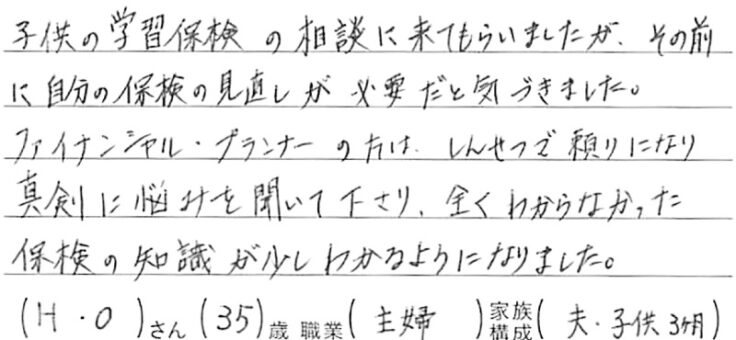 子供の学習保検の相談に来てもらいましたが、その前
に自分の保検の見直しが必要だと気づきました。
ファイナンシャル・プランナーの方は、しんせつで頼りになり
真剣に悩みを聞いて下さり、全くわからなかった
保検の知識が少しわかるようになりました。
(H・O)さん(35)歳 職業(主婦)家族構成(夫・子供3ヶ月)